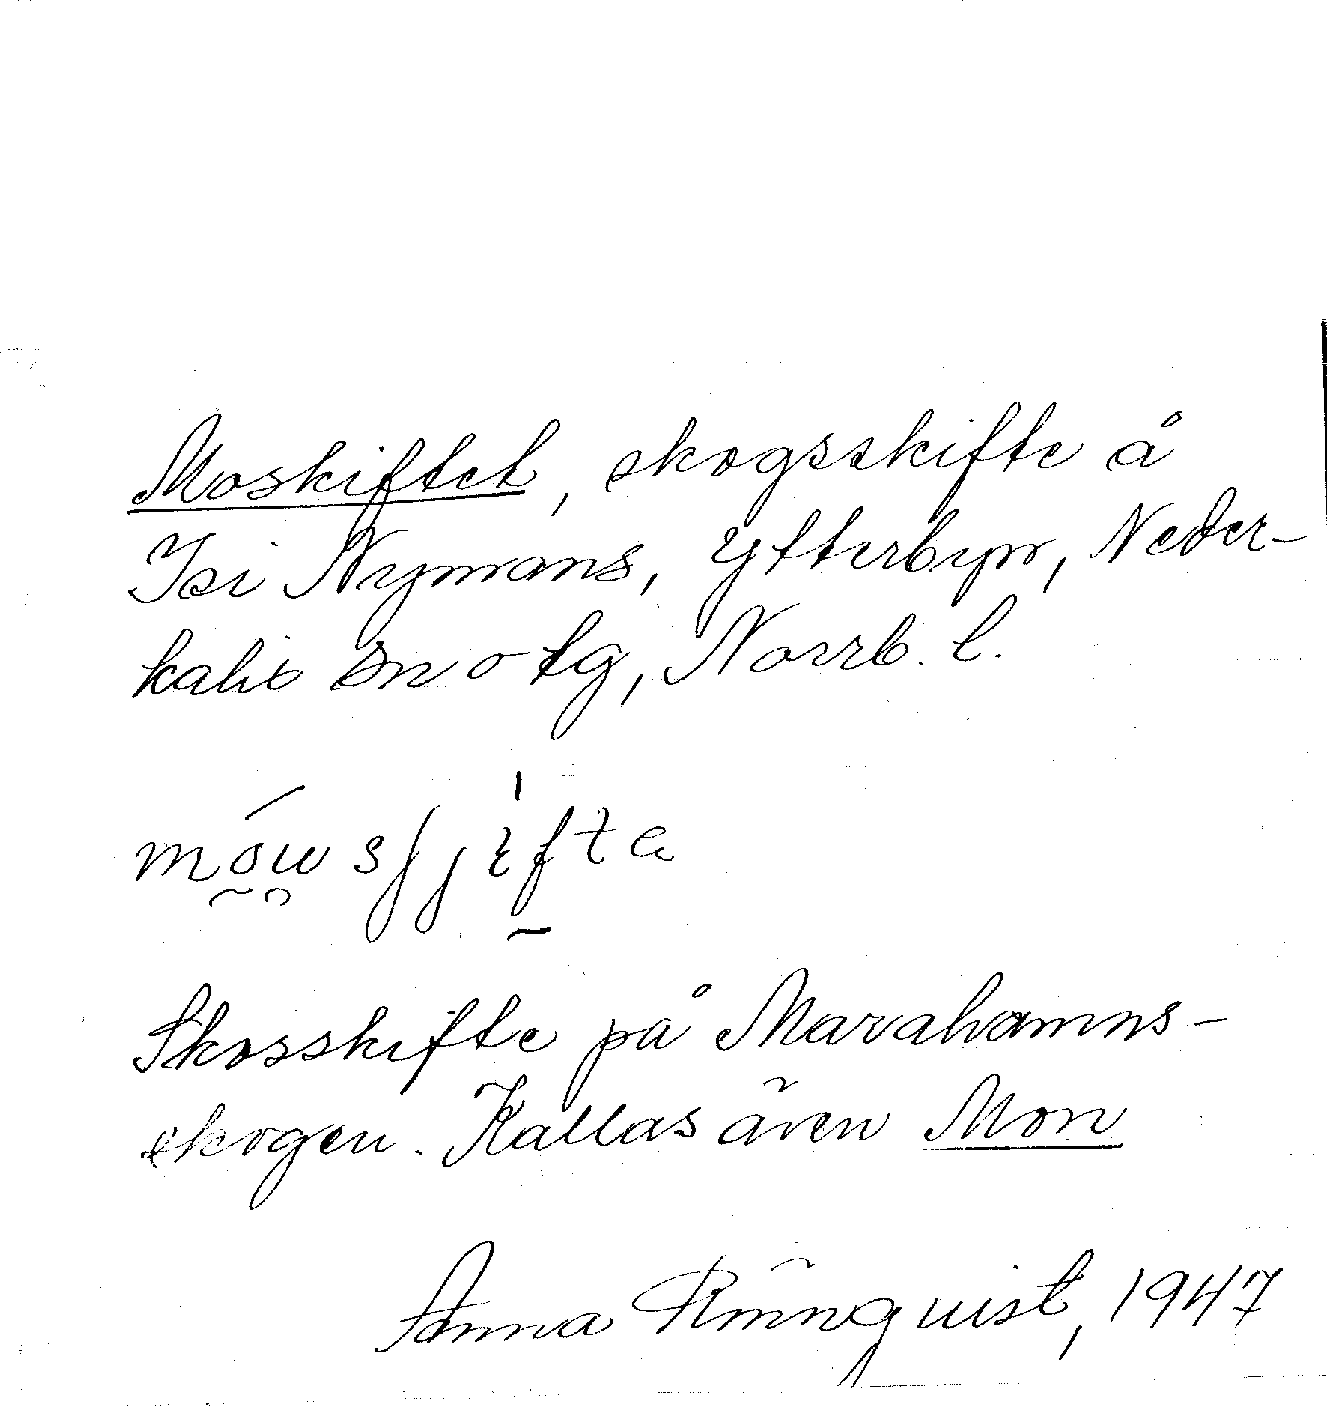 Moskiftet, skogsskifte å
Isi Nymans, Ytterbyn, Neder-
kalix sn o tg, Norrb. l.
Skosskifte på Marahamns-
skogen. Kallas även Mon
Anna Rönnquist, 1947